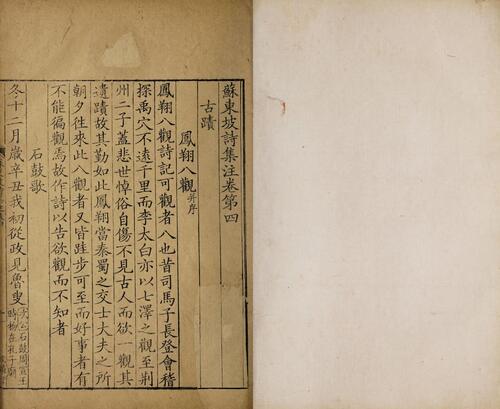 蘇東坡詩集注卷第四
古蹟
鳳翔八觀 并序
鳳翔八觀詩記可觀者八也昔司馬子長登會稽
探禹穴不遠千里而李太白亦以七澤之觀至荆
州二子蓋悲世悼俗自傷不見古人而欲一觀其
遺蹟故其勤如此鳳翔當秦蜀之交士大夫之所
朝夕往來此八觀者又皆跬步可至而好事者有
不能徧觀焉故作詩以告欲觀而不知者
石鼓歌
冬十二月歲辛丑我初從政見魯叟
石鼓周宣王
時物在孔子廟